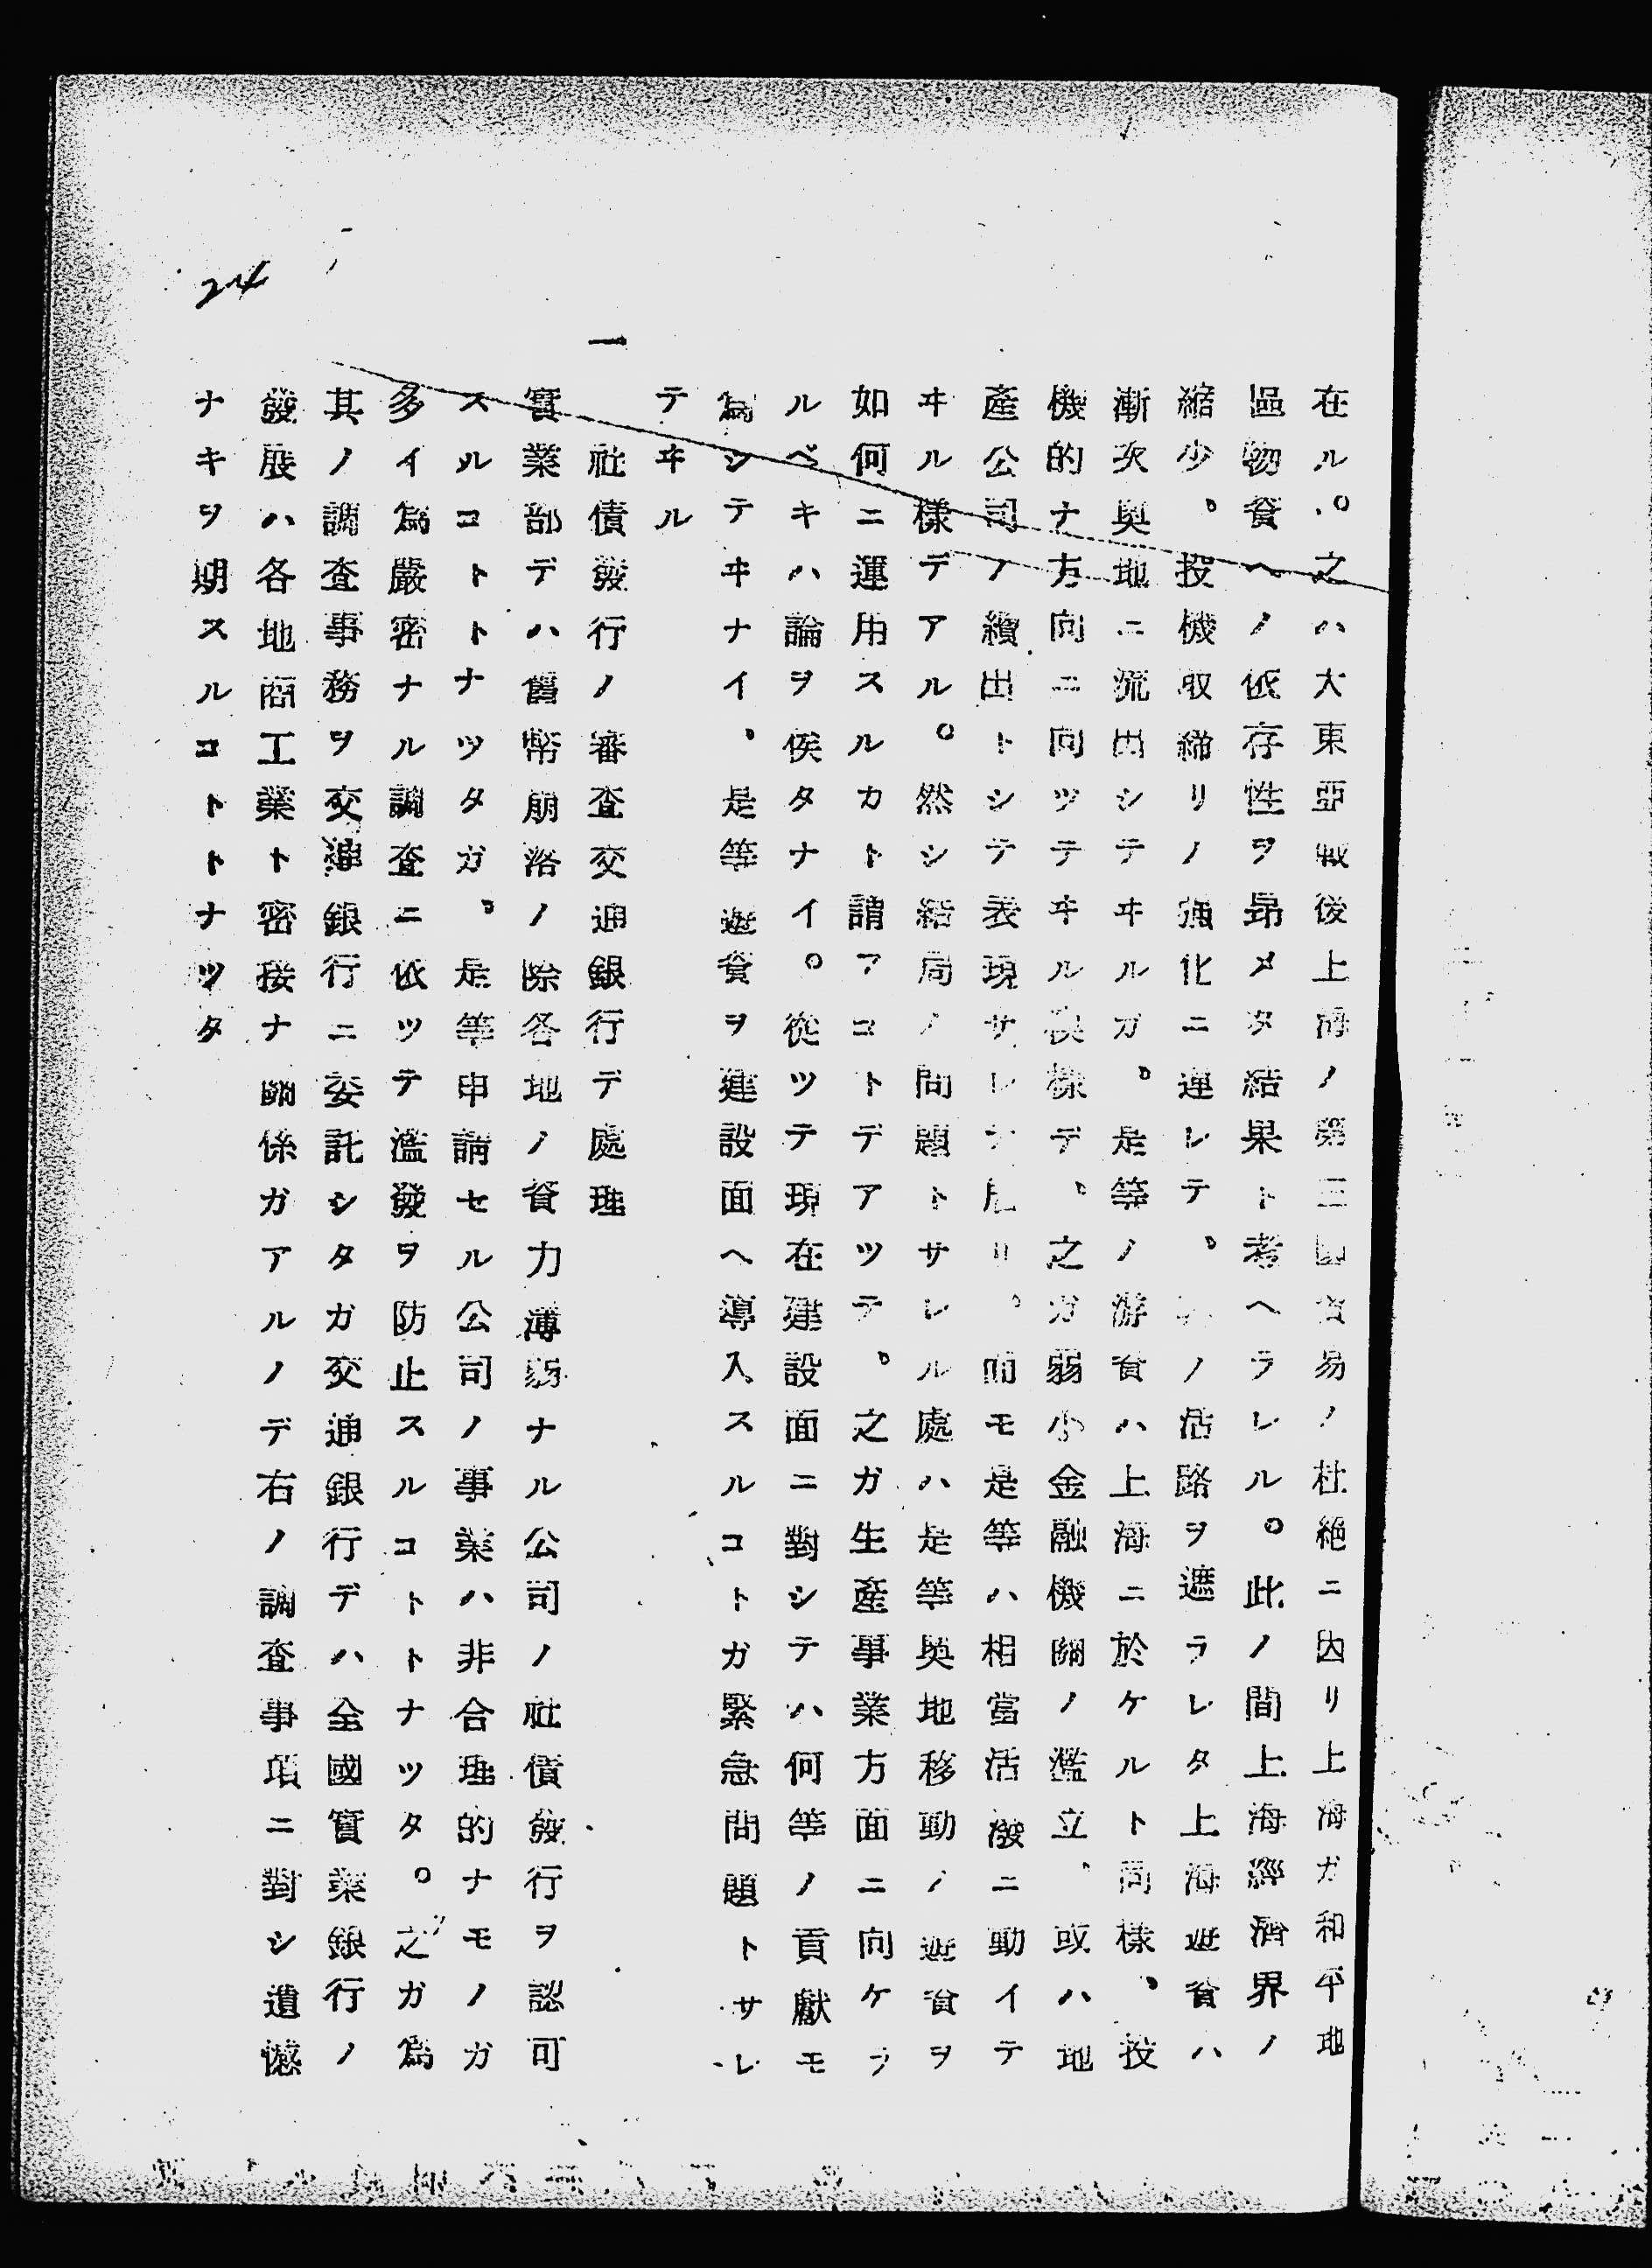 在ル。之ハ大東亞戰後上海ノ第三國貿易ノ杜絕ニ因リ上海ガ和平地
區物資ヘノ依存性ヲ昻メタ結果ト考ヘラレル。此ノ間上海經濟界ノ
縮少、投機取締リノ强化ニ連レテ、ノ活路ヲ遮ラレタ上海遊資ハ
漸次奧地ニ流出シテヰルガ、是等ノ游資ハ上海ニ於ケルト同樣、投
機的ナ方向ニ向ツテヰル模樣デ、之ガ弱小金融機關ノ濫立、或ハ地
產公司ノ續出トシテ表現サレテ居リ、而モ是等ハ相當活潑ニ動イテ
ヰル樣デアル。然シ結局ノ問題トサレル處ハ是等奧地移動ノ遊資ヲ
如何ニ運用スルカト謂フコトデアツテ、之ガ生產事業方面ニ向ケラ
ルベキハ論ヲ俟タナイ。從ツテ現在建設面ニ對シテハ何等ノ貢獻モ
爲シテヰナイ、是等遊資ヲ建設面ヘ導入スルコトガ緊急問題トサレ
テヰル
一　社債發行ノ審査交通銀行デ處理
實業部デハ舊幣崩落ノ除各地ノ資力薄弱ナル公司ノ社債發行ヲ認可
スルコトトナツタガ、是等申請セル公司ノ事業ハ非合理的ナモノガ
多イ爲嚴密ナル調査ニ依ツテ濫發ヲ防止スルコトトナツタ。之ガ爲
其ノ調査事務ヲ交通銀行ニ委託シタガ交通銀行デハ全國實業銀行ノ
發展ハ各地商工業ト密接ナ關係ガアルノデ右ノ調査事項ニ對シ遺憾
ナキヲ期スルコトトナツタ
24